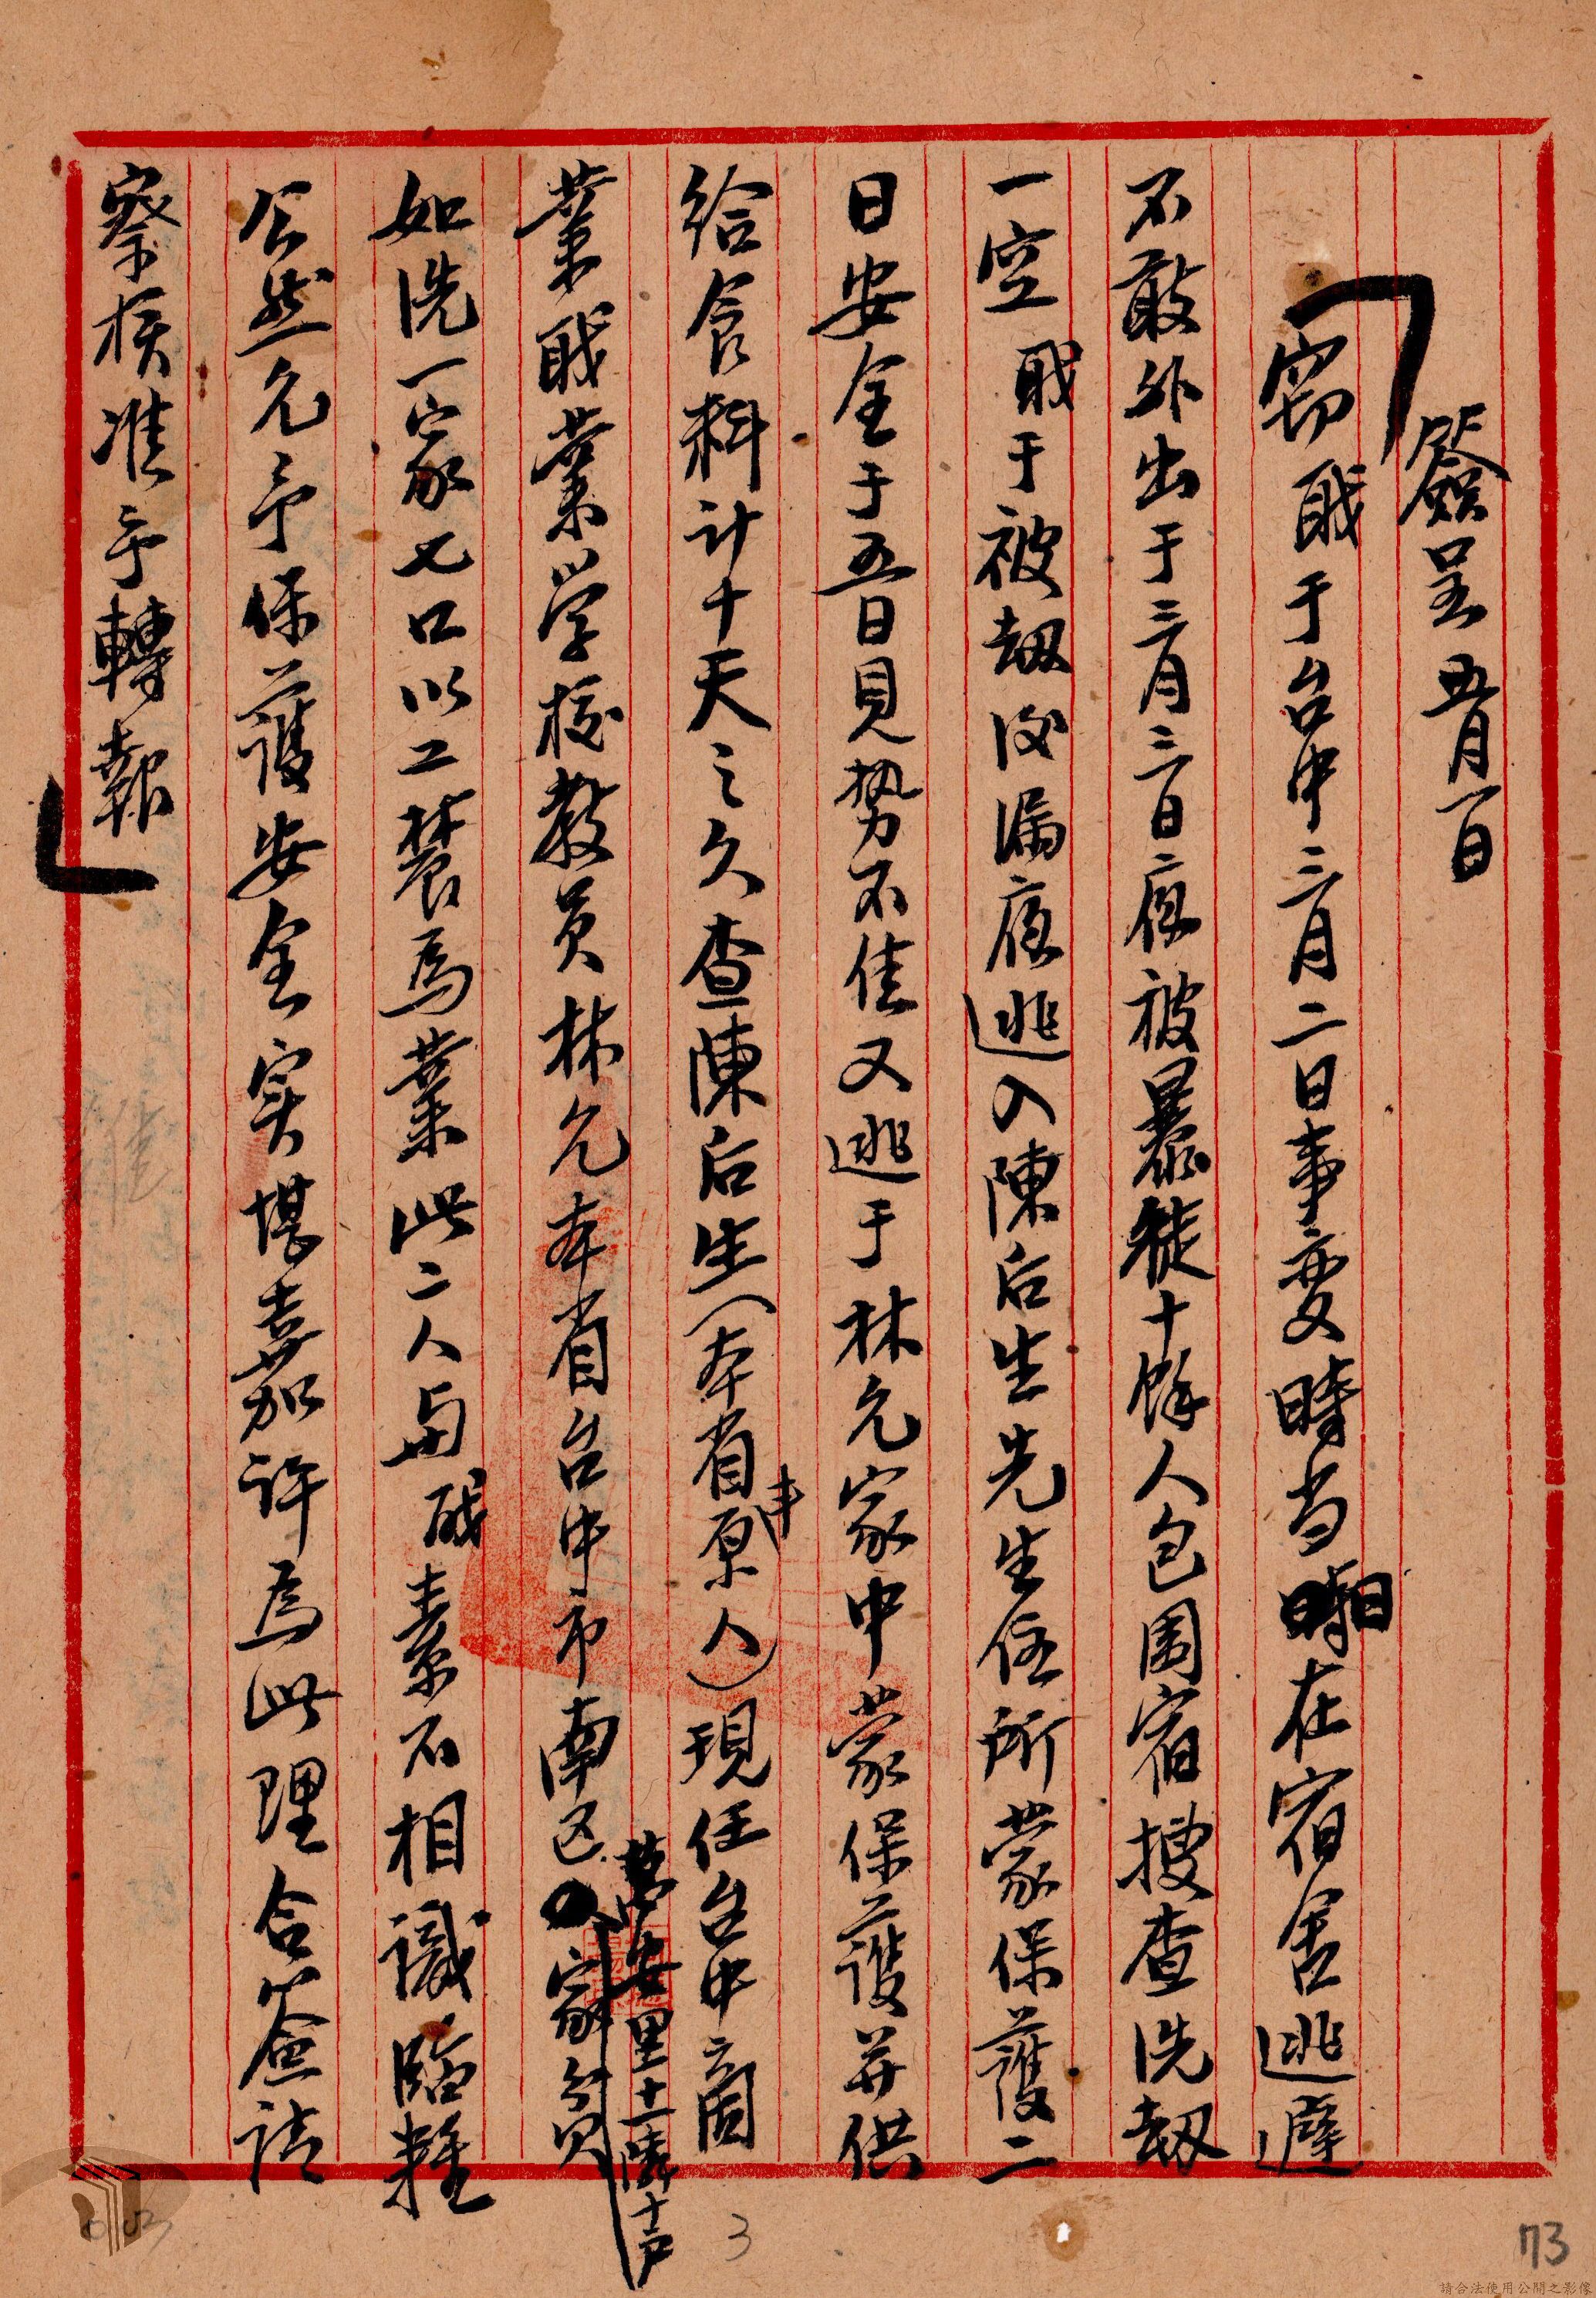 簽呈 五月一日
窃戝于台中三月二日事变時当日在宿舍逃避
不敢外出于三月三日夜被暴徒十餘人包围宿搜查洗劫
一空戝于被劫後漏夜逃入陳后生先生住所蒙保護二
日安全于五日見势不佳又逃于林允家中蒙保護并供
給食料计十天之久查陳后生(本省丰原人)現任台中商
業戝業学校教员林允本省台中市南区萬安里十一隣十戶家貧
如洗一家七口以工農為業此二人與戝素不相識臨難
公然允予保護安全实堪嘉许為此理合签请
察核准予轉報
3
73
請合法使用公開之影像